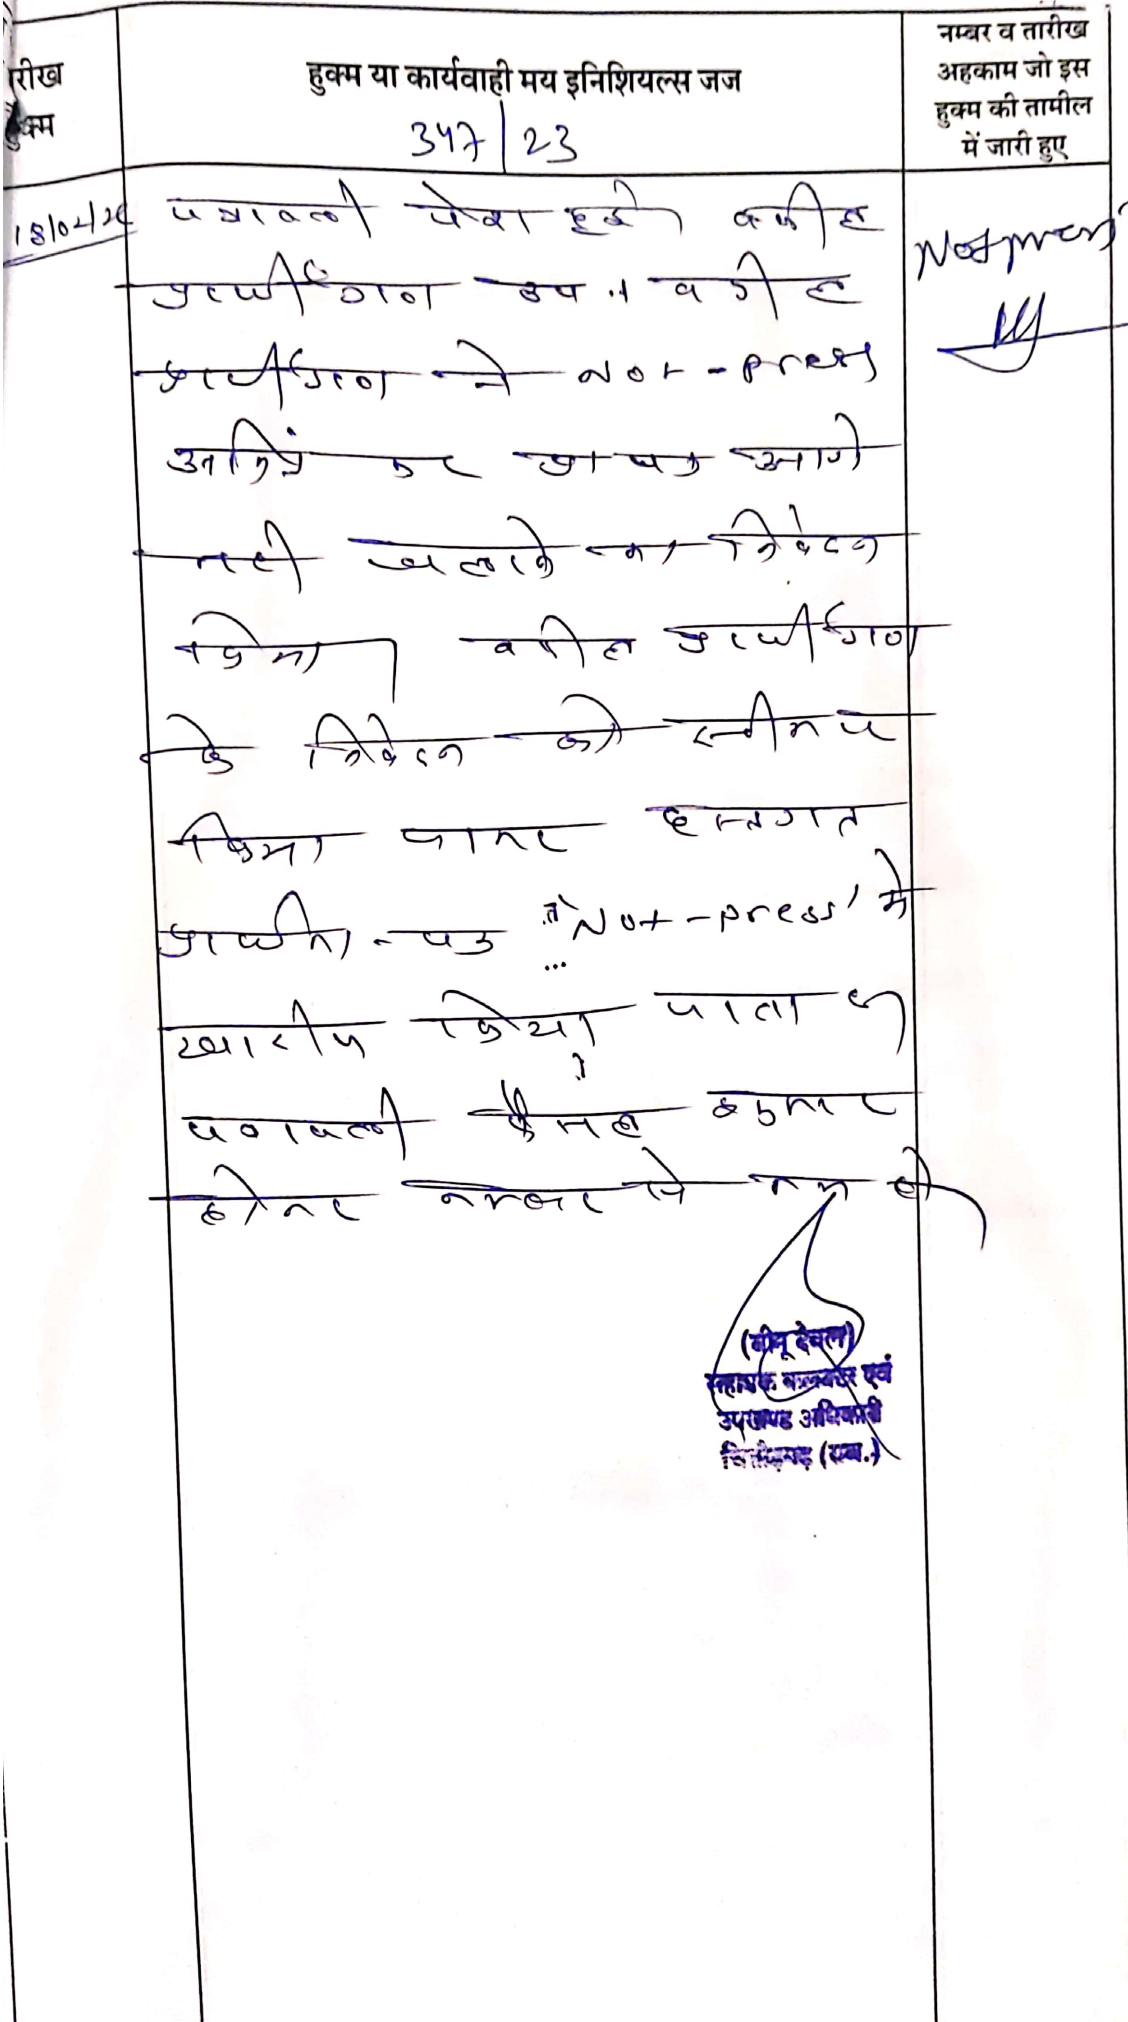 रीख
हुक्म
हुक्म या कार्यवाही मय इनिशियल्स जज
347/23
नम्बर व तारीख
अहकाम जो इस
हुक्म की तामील
में जारी हुए
पत्रावली पेश हुई। वकील
प्रार्थीगण उप .। वकील
प्रार्थीगण ने Not-press
अंकित कर प्रा पत्र आगे
नही चलाने का निवेदन
किया। वकील प्रार्थीगण
के निवेदन को स्वीकार
किया जाकर हस्तगत
प्रार्थना-पत्र "Not-press" मे
खारीज किया जाता है।
पत्रावली फैसल शुमार
होकर नम्बर से कम हो।
Notpress
(बीनू देवल)
सहायक कलक्टर एवं
उपखण्ड अधिकारी
चित्तौड़गढ़ (राज.)